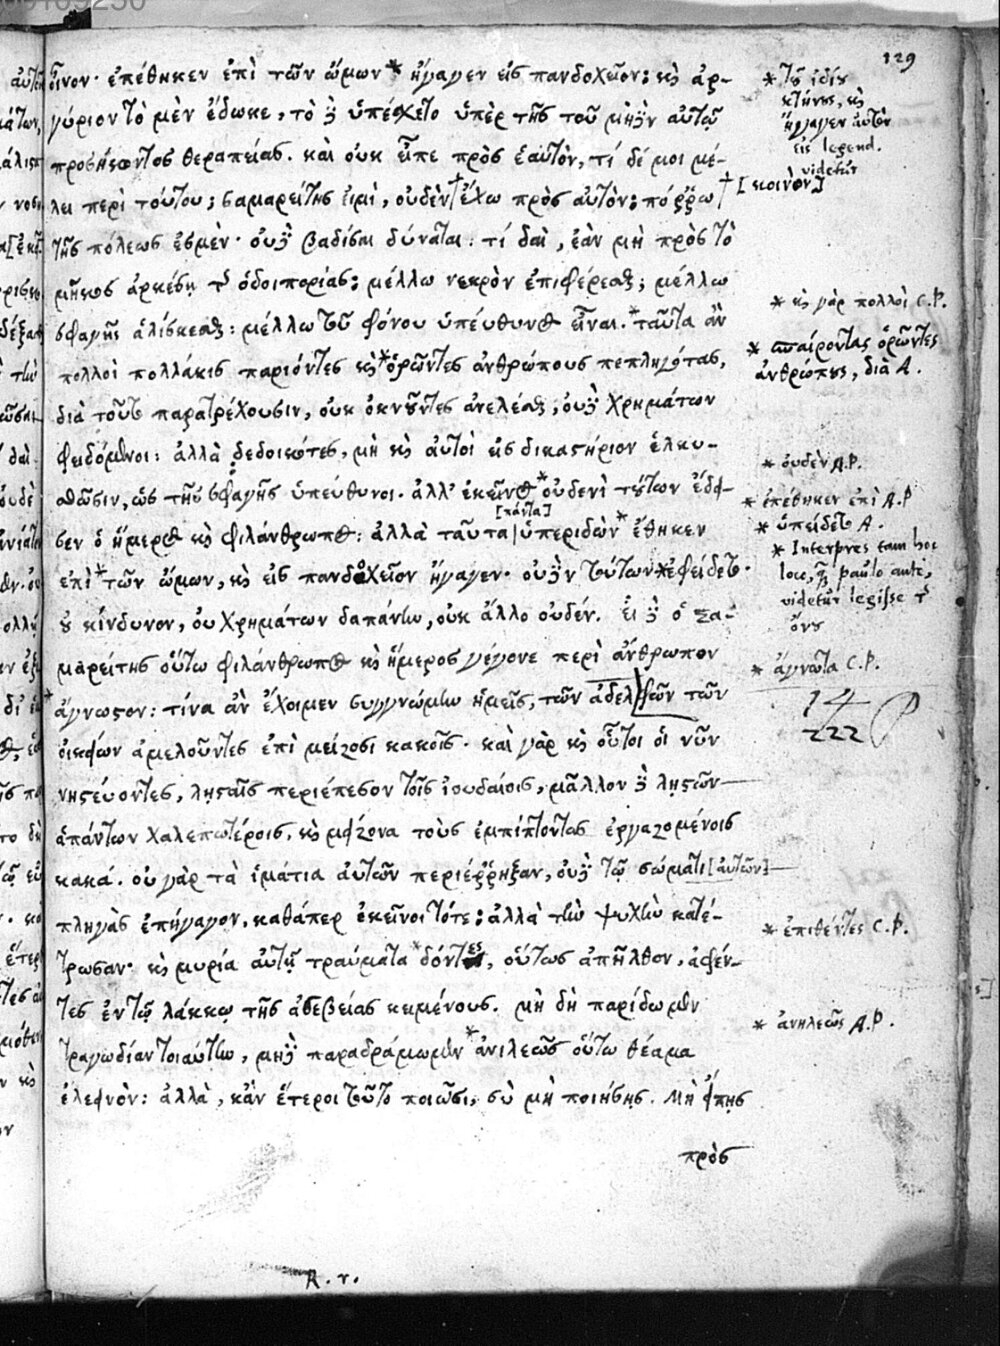 129
οἶνον· ἐπέθηκεν ἐπὶ τῶν ὤμων * ἤγαγεν εἰς πανδοχεῖον: κὶ ἀρ-
γύριον τὸ μὲν ἔδωκε, τὸ δὲ ὑπέσχετο ὑπὲρ τῆς τοῦ μηδὲν αὐτῷ
προσήκοντος θεραπείας. καὶ οὐκ εἶπε πρὸς ἑαυτὸν, τί δέ μοι μέ-
λει περὶ τούτου; σαμαρείτης εἰμὶ, οὐδὲν † ἔχω πρὸς αὐτὸν: πόῤῥω
τῆς πόλεως ἐσμὲν· οὐδὲ βαδίσαι δύναται: τί δαὶ, ἐὰν μὴ πρὸς τὸ
μῆκος ἀρκέσῃ τ ὁδοιπορίας: μέλλω νεκρὸν ἐπιφέρεσθαι; μέλλω
σφαγῆς ἁλίσκεσθαι: μέλλω τοῦ φόνου ὑπεύθυνος εἶναι. * ταῦτα ἂν
πολλοὶ πολλάκις παριόντες κὶ * ὁρῶντες ἀνθρώπους πεπληγότας,
διὰ τοῦτο παρατρέχουσιν, οὐκ ὀκνοῦντες ἀνελέσθαι, οὐδὲ χρημάτων
φειδόμενοι: ἀλλὰ δεδοικότες, μὴ κὶ αὐτοὶ εἰς δικαστήριον ἑλκυ-
σθῶσιν, ὡς τῆς σφαγῆς ὑπεύθυνοι. ἀλλ' ἐκεῖνος * οὐδενὶ τούτων ἔδει-
[πάντα]
σεν ὁ ἥμερος κὶ φιλάνθρωπος: ἀλλὰ ταῦτα | ὑπεριδὼν * ἔθηκεν
ἐπὶ * τῶν ὤμων, κὶ εἰς πανδοχεῖον ἤγαγεν· οὐδὲν τούτων * ἐφείδετο·
οὐ κίνδυνον, οὐ χρημάτων δαπάνην, οὐκ ἄλλο οὐδέν. εἰ δὲ ὁ σα-
μαρείτης οὕτω φιλάνθρωπος κὶ ἥμερος γέγονε περὶ ἄνθρωπον
* ἄγνωστον: τίνα ἂν ἔχοιμεν συγγνώμην ἡμεῖς, τῶν ἀδελφῶν τῶν
οἰκείων ἀμελοῦντες ἐπὶ μείζοσι κακοῖς. καὶ γὰρ κὶ οὗτοι οἱ νῦν
νηστεύοντες, λῃσταῖς περιέπεσον τοῖς ἰουδαίοις, μᾶλλον δὲ λῃστῶν
ἁπάντων χαλεπωτέροις, κὶ μείζονα τοὺς ἐμπίπτοντας ἐργαζομένοις
κακά. οὐ γὰρ τὰ ἱμάτια αὐτῶν περιέῤῥηξαν, οὐδὲ τῷ σώματι [αὐτῶν]
πληγὰς ἐπήγαγον, καθάπερ ἐκεῖνοι τότε: ἀλλὰ τὴν ψυχὴν κατέ-
τρωσαν· κὶ μυρία αὐτῇ τραύματα * δόντες, οὕτως ἀπῆλθον, ἀφέν-
τες ἐν τῷ λάκκῳ τῆς ἀσεβείας κειμένους. μὴ δὴ παρίδωμεν
τραγῳδίαν τοιαύτην, μηδὲ παραδράμωμεν * ἀνιλεῶς οὕτω θέαμα
ἐλεεινὸν: ἀλλὰ, κἂν ἕτεροι τοῦτο ποιῶσι, σὺ μὴ ποιήσῃς. Μὴ εἴπῃς
πρὸς
R. r.
* τοῦ ἰδίου
κτήνους, κὶ
ἤγαγεν αὐτὸν
εἰς legend.
videtur
† [κοινὸν]
* κὶ γὰρ πολλοὶ C.P.
* παίροντας ὁρῶντες
ἀνθρώπους, διὰ A.
* οὐδὲν A.P.
* ἐπέθηκεν ἐπὶ A.P
* ὑπείδετο A.
* Interpres tam hoc
loco, q̃ paulo ante,
videtur legisse τ
ὄνου
* ἀγνῶτα C.P.
14
222
* ἐπιθέντες C.P.
* ἀνηλεῶς A.P.